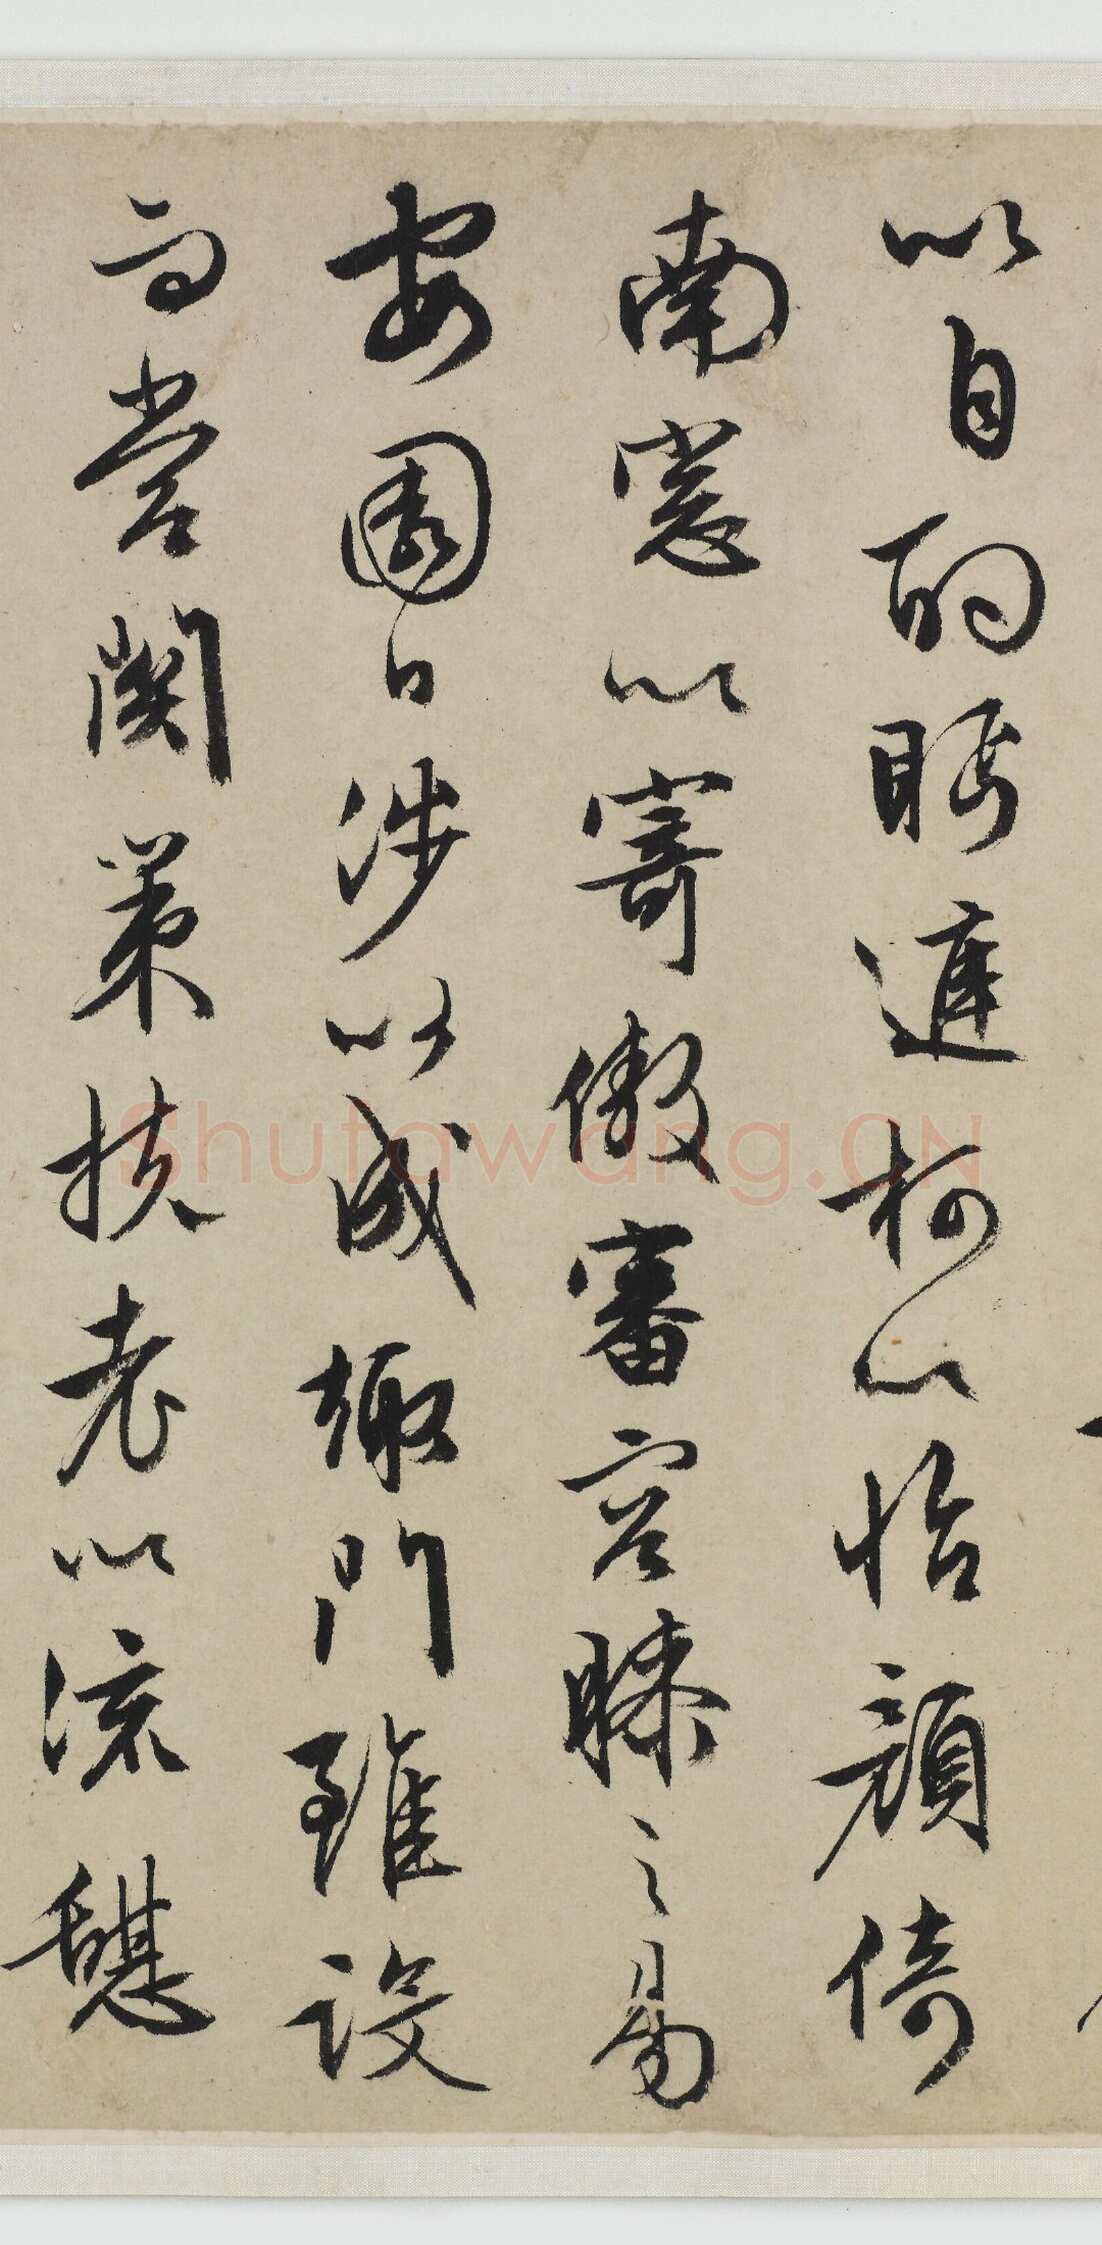 以自酌眄庭柯以怡顏倚
南窓以寄傲審容膝之易
安園日涉以成趣門雖設
而常關策扶老以流憩
Shufawang.CN